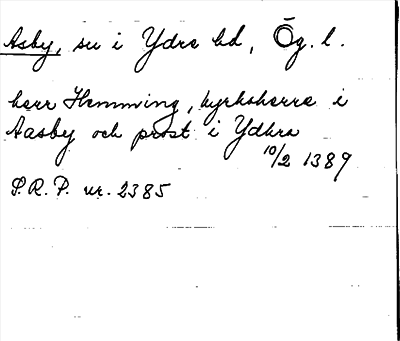 Asby, sn i Ydre hd, Ög. l.
herr Hemming, kyrkoherre i
Aasby och prost i Ydhra
10/2 1389
S.R.P. nr. 2385